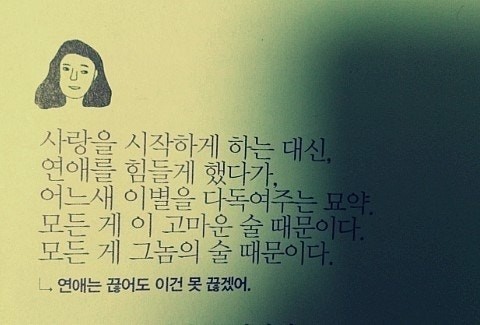 사랑을 시작하게 하는 대신,
연애를 힘들게 했다가,
어느새 이별을 다독여주는 묘약.
모든 게 이 고마운 술 때문이다.
모든 게 그놈의 술 때문이다.
↳ 연애는 끊어도 이건 못 끊겠어.